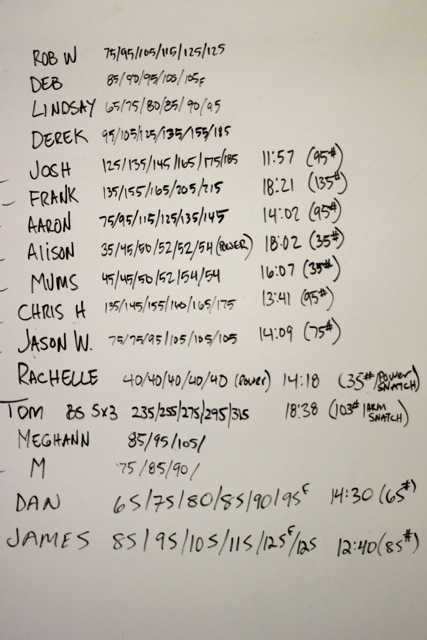 ROB W 75/95/105/115/125/125
DEB 85/90/95/100/105F
LINDSAY 65/75/80/85/90/95
DEREK 95/105/125/135/155/185
JOSH 125/135/145/165/175/185 11:57 (95#)
FRANK 135/155/165/205/215 18:21 (135#)
AARON 75/95/115/125/135/145 14:02 (95#)
Alison 35/45/50/52/52/54 (POWER) 18:02 (35#)
MUMS 45/45/50/52/54/54 16:07 (35#)
CHRIS H 135/145/155/160/165/175 13:41 (95#)
JASON W. 75/75/95/105/105/105 14:09 (75#)
RACHELLE 40/40/40/40/40 (POWER) 14:18 (35#/POWER SNATCH)
TOM BS 5x3 235/255/275/295/315 18:38 (103# 1ARM SNATCH)
MEGHANN 85/95/105/
M 75/85/90/
DAN 65/75/80/85/90/95F 14:30 (65#)
JAMES 85/95/105/115/125F/125 12:40 (85#)